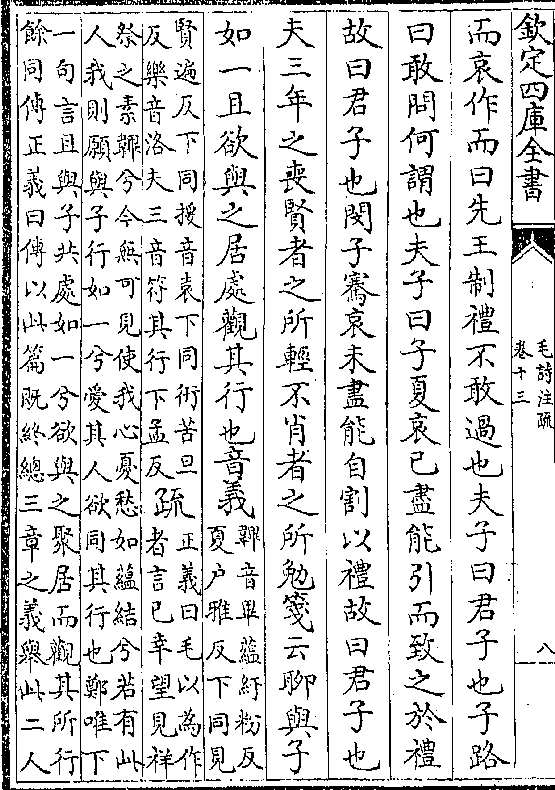 欽定四庫全書
毛詩注疏
卷十三
八
而哀作而曰先王制禮不敢過也夫子曰君子也子路
曰敢問何謂也夫子曰子夏哀已盡能引而致之於禮
故曰君子也閔子騫哀未盡能自割以禮故曰君子也
夫三年之喪賢者之所輕不肖者之所勉箋云聊與子
如一且欲與之居處觀其行也音義
韠音畢藴紆粉反
夏戶雅反下同見
賢遍反下同援音袁下同衎苦旦
反樂音洛夫三音符其行下孟反
疏
正義曰毛以為作
者言已幸望見祥
祭之素韠兮今無可見使我心憂愁如蘊結兮若有此
人我則願與子行如一兮愛其人欲同其行也鄭唯下
一句言且與子共處如一兮欲與之聚居而觀其所行
餘同傳正義曰傳以此篇既終總三章之義舉此二人